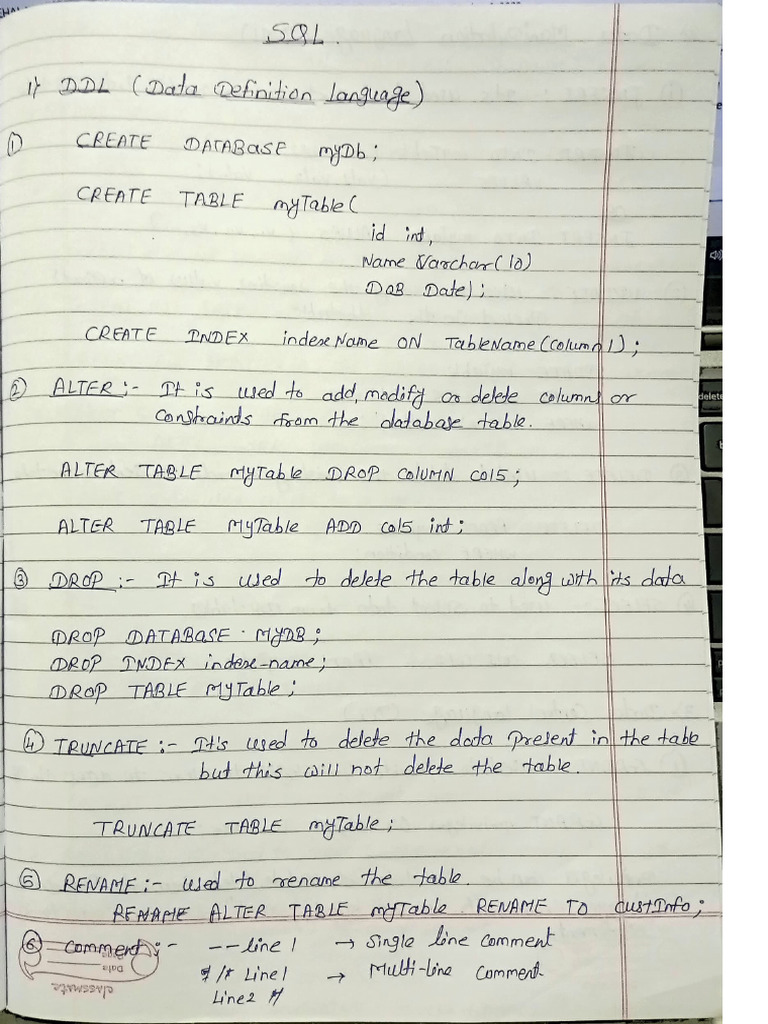 SQL.
1) DDL (Data Definition Language)
① CREATE DATABASE myDb;
CREATE TABLE myTable(
id int,
Name Varchar(10)
DOB Date);
CREATE INDEX indexName ON TableName(column1);
② ALTER :- It is used to add, modify or delete columns or
constrainds from the database table.
ALTER TABLE MyTable DROP COLUMN col5;
ALTER TABLE MyTable ADD col5 int;
③ DROP :- It is used to delete the table along with its data
DROP DATABASE MYDB;
DROP INDEX index-name;
DROP TABLE MyTable;
④ TRUNCATE :- It's used to delete the data present in the table
but this will not delete the table.
TRUNCATE TABLE myTable;
⑤ RENAME :- used to rename the table.
RENAME ALTER TABLE myTable RENAME TO custInfo;
⑥ comment :- --line 1 → single line comment
/* Line1 → Multi-line comment
Line2 */
Date
classmate
delete